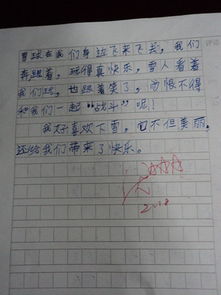 雪球在我们身边飞来飞去，我们
奔跑着，玩得真快乐，雪人看着
我们跑，也跟着笑了，而恨不得
和我们一起“战斗”呢！
我好喜欢下雪，它不但美丽，
还给我们带来了快乐。